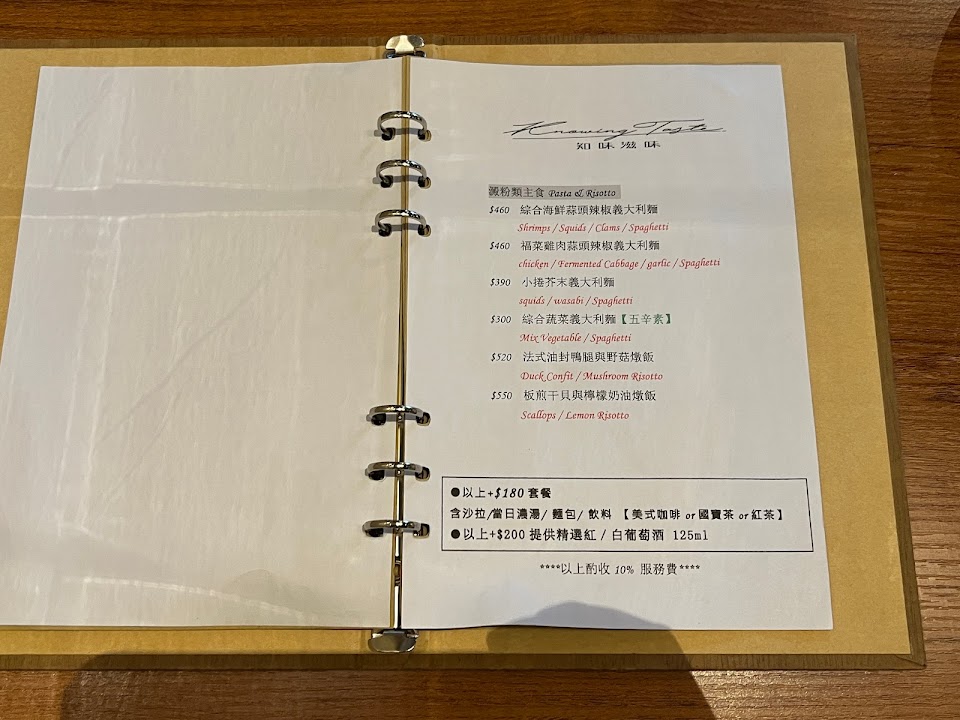 Knowing Taste
知味滋味
澱粉類主食 Pasta & Risotto
$460 綜合海鮮蒜頭辣椒義大利麵
Shrimps / Squids / Clams / Spaghetti
$460 福菜雞肉蒜頭辣椒義大利麵
chicken / Fermented Cabbage / garlic / Spaghetti
$390 小捲芥末義大利麵
squids / wasabi / Spaghetti
$300 綜合蔬菜義大利麵【五辛素】
Mix Vegetable / Spaghetti
$520 法式油封鴨腿與野菇燉飯
Duck Confit / Mushroom Risotto
$550 板煎干貝與檸檬奶油燉飯
Scallops / Lemon Risotto
●以上+$180 套餐
含沙拉/當日濃湯/ 麵包/ 飲料 【美式咖啡 or 國寶茶 or 紅茶】
●以上+$200 提供精選紅 / 白葡萄酒 125ml
****以上酌收 10% 服務費****